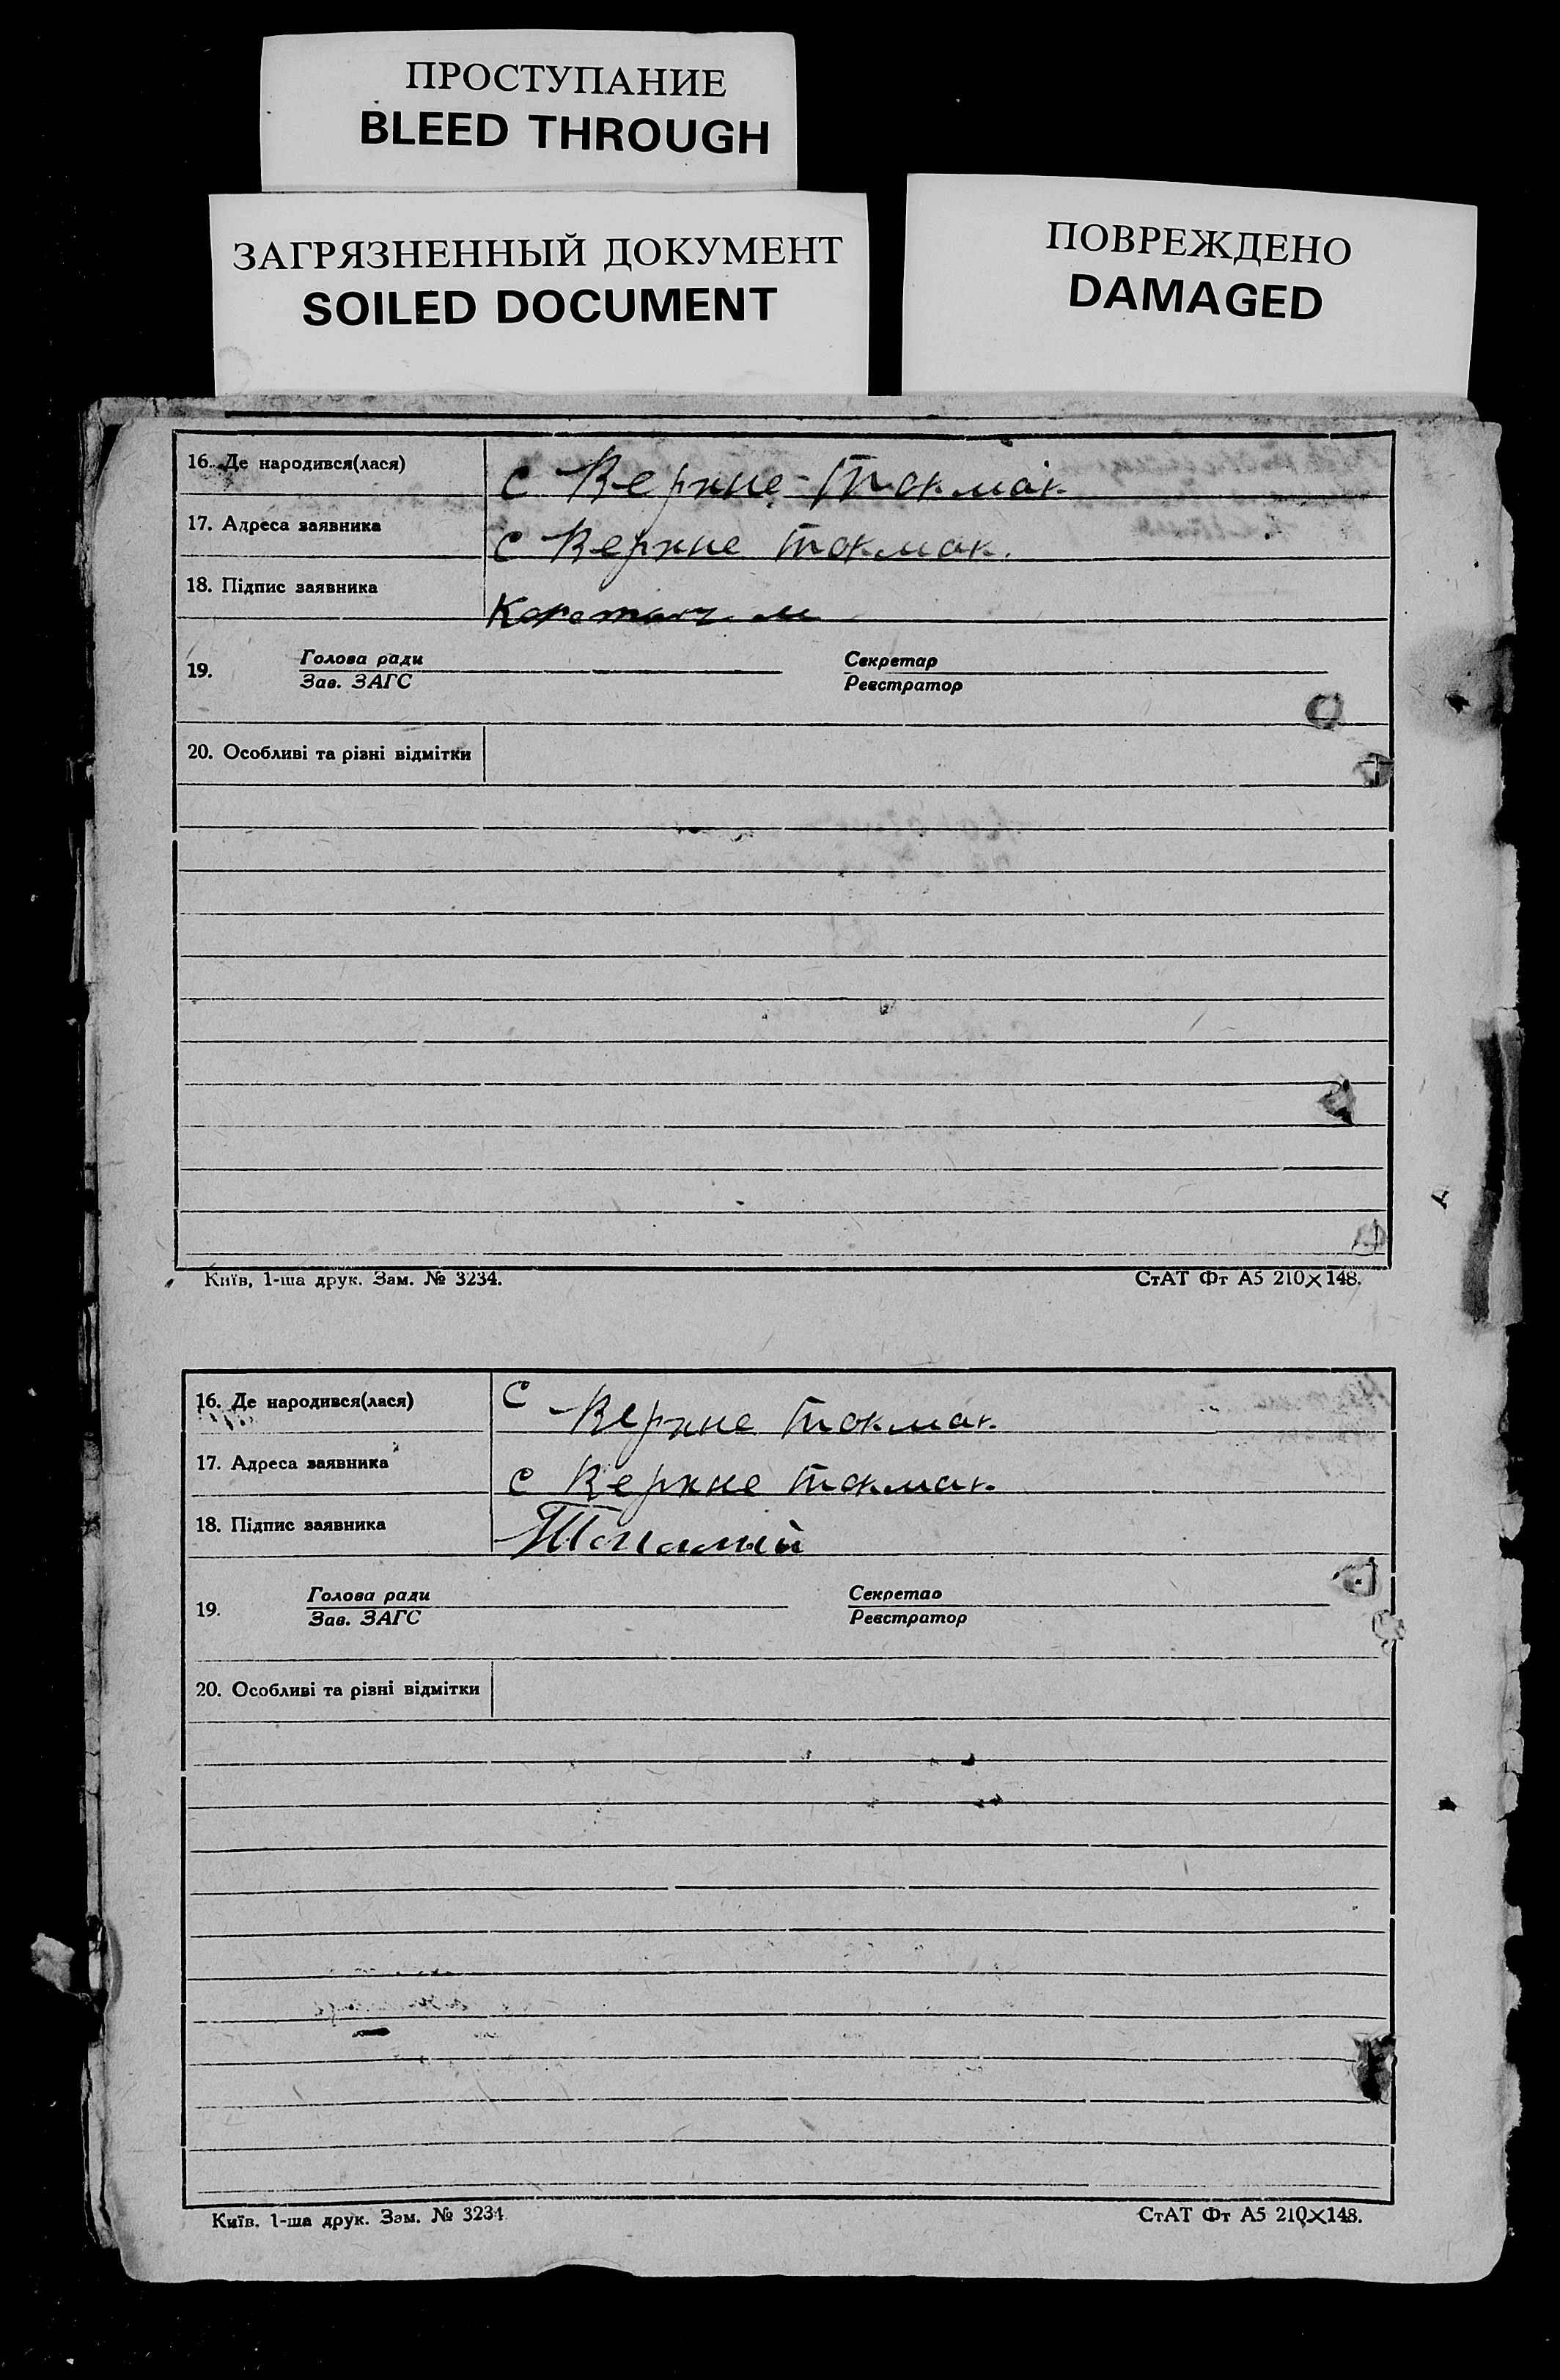 ПРОСТУПАНИЕ
BLEED THROUGH
ЗАГРЯЗНЕННЫЙ ДОКУМЕНТ
SOILED DOCUMENT
ПОВРЕЖДЕНО
DAMAGED
16. Де народився(лася) с Верхне-Токмак
17. Адреса заявника с Верхне Токмак.
18. Підпис заявника
19. Голова ради Секретар
Зав. ЗАГС Реєстратор
20. Особливі та різні відмітки
Київ, 1-ша друк. Зам. № 3234. СтАТ Фт А5 210×148.
16. Де народився(лася) с Верхне Токмак
17. Адреса заявника с Верхне Токмак
18. Підпис заявника
19. Голова ради Секретар
Зав. ЗАГС Реєстратор
20. Особливі та різні відмітки
Київ. 1-ша друк. Зам. № 3234 СтАТ Фт А5 210×148.